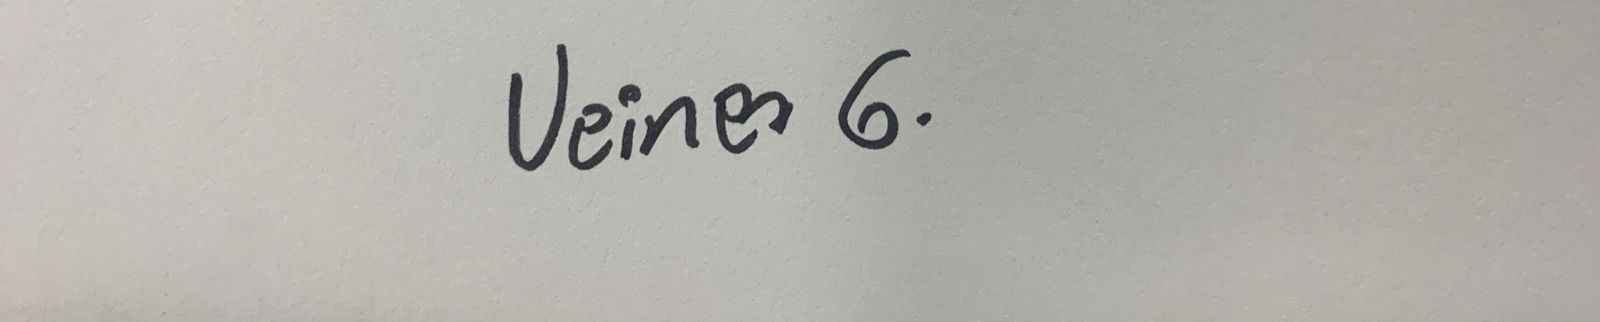 Veiner 6.